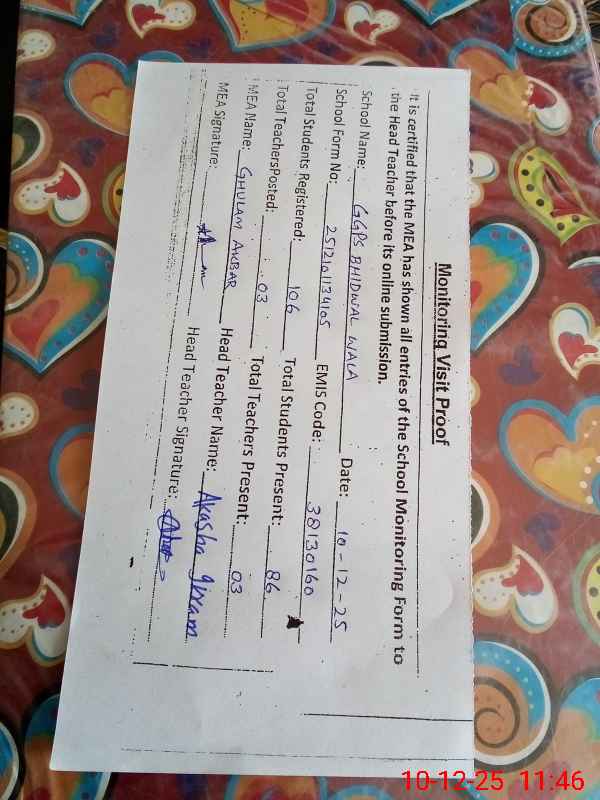 Monitoring Visit Proof
It is certified that the MEA has shown all entries of the School Monitoring Form to
the Head Teacher before its online submission.
School Name: GGPS BHIDWAL WALA Date: 10-12-25
School Form No: 251210113410S EMIS Code: 38130160
Total Students Registered: 106 Total Students Present: 86
Total TeachersPosted: 03 Total Teachers Present: 03
MEA Name: GHULAM AKBAR Head Teacher Name: Akasha Ikram
MEA Signature: Head Teacher Signature:
10-12-25 11:46